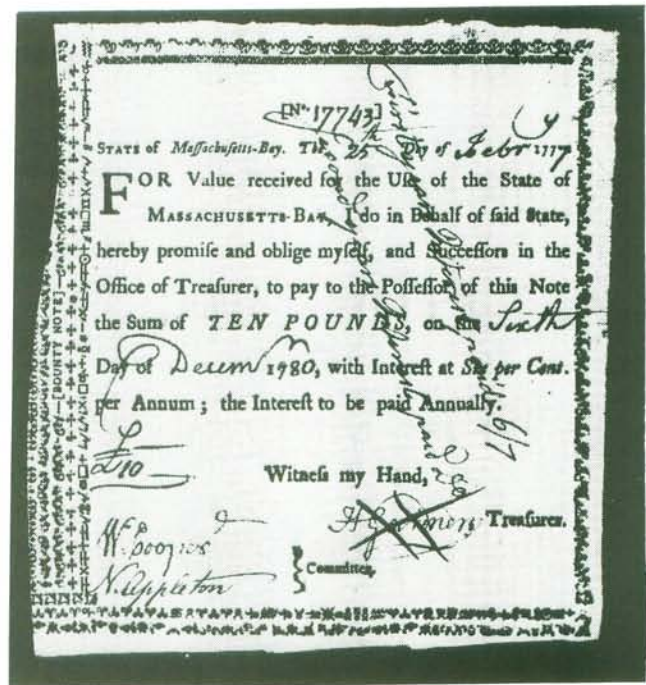 [No. 17743]
STATE of Massachusetts-Bay. The 25th Day of Febry 1777
FOR Value received for the Use of the State of
MASSACHUSETTS-BAY, I do in Behalf of said State,
hereby promise and oblige myself, and Successors in the
Office of Treasurer, to pay to the Possessor of this Note
the Sum of TEN POUNDS, on the Sixth
Day of Decemr 1780, with Interest at Six per Cent.
per Annum; the Interest to be paid Annually.
£10
Witness my Hand,
H Gardner Treasurer.
W Cooper
N. Appleton
Committee,
[BOUNTY NOTE]